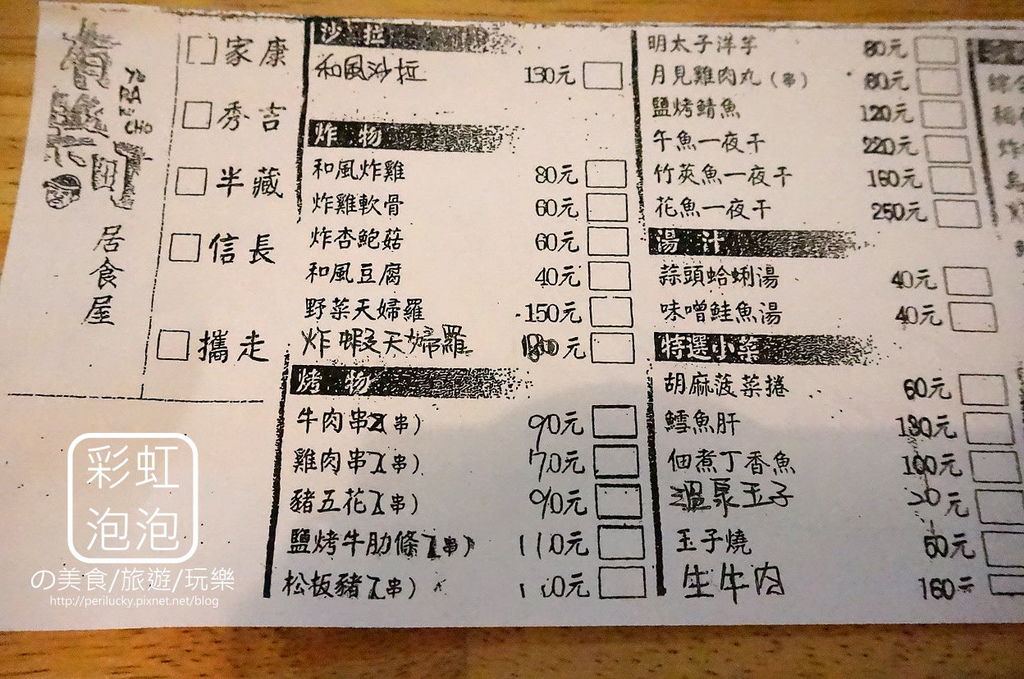 有樂町
YU
RA
KU
CHO
居食屋
家康
秀吉
半藏
信長
攜走
沙拉
和風沙拉 130元
炸物
和風炸雞 80元
炸雞軟骨 60元
炸杏鮑菇 60元
和風豆腐 40元
野菜天婦羅 150元
炸蝦天婦羅 元
烤物
牛肉串(串) 90元
雞肉串(串) 70元
豬五花(串) 90元
鹽烤牛肋條(串) 110元
松板豬(串) 元
明太子洋芋 80元
月見雞肉丸(串) 80元
鹽烤鯖魚 120元
午魚一夜干 220元
竹莢魚一夜干 160元
花魚一夜干 250元
湯汁
蒜頭蛤蜊湯 40元
味噌鮭魚湯 40元
特選小菜
胡麻菠菜捲 60元
鱈魚肝 130元
佃煮丁香魚 100元
溫泉玉子 元
玉子燒 60元
生牛肉 160元
彩虹
泡泡
の美食/旅遊/玩樂
http://perilucky.pixnet.net/blog